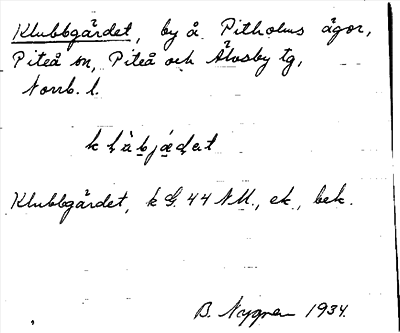 Klubbgärdet, by å Pitholms ägor,
Piteå sn, Piteå och Älvsby tg,
Norrb. l.
Klubbgärdet, k G. 44 NM., ek., bek.
B. Nygren 1934.